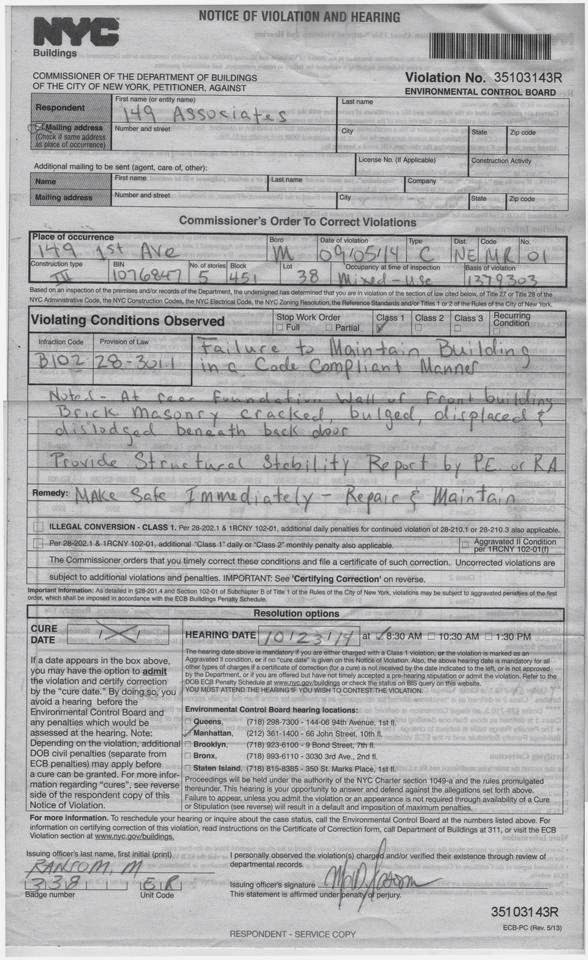 NOTICE OF VIOLATION AND HEARING
NYC
Buildings
COMMISSIONER OF THE DEPARTMENT OF BUILDINGS
OF THE CITY OF NEW YORK, PETITIONER, AGAINST
Violation No. 35103143R
ENVIRONMENTAL CONTROL BOARD
Respondent
First name (or entity name)
Last name
149 Associates
Mailing address
(Check if same address as place of occurrence)
Number and street
City
State
Zip code
Additional mailing to be sent (agent, care of, other):
License No. (If Applicable)
Construction Activity
Name
First name
Last name
Company
Mailing address
Number and street
City
State
Zip code
Commissioner's Order To Correct Violations
Place of occurrence
Boro
Date of violation
Type
Dist.
Code
No.
149 1st Ave M 09/05/14 C NE MR 01
Construction type
BIN
No. of stories
Block
Lot
Occupancy at time of inspection
Basis of violation
III 1076847 5 451 38 Mixed-Use 1379303
Based on an inspection of the premises and/or records of the Department, the undersigned has determined that you are in violation of the section of law cited below, of Title 27 or Title 28 of the
NYC Administrative Code, the NYC Construction Codes, the NYC Electrical Code, the NYC Zoning Resolution, the Reference Standards and/or Titles 1 or 2 of the Rules of the City of New York.
Violating Conditions Observed
Stop Work Order
Full Partial
Class 1
Class 2
Class 3
Recurring Condition
Infraction Code
Provision of Law
B102 28-301.1
Failure to Maintain Building
in a Code Compliant Manner
Noted - At rear Foundation Wall of Front building
Brick Masonry cracked, bulged, displaced &
dislodged beneath back door
Provide Structural Stability Report by PE or RA
Remedy: Make Safe Immediately - Repair & Maintain
ILLEGAL CONVERSION - CLASS 1. Per 28-202.1 & 1RCNY 102-01, additional daily penalties for continued violation of 28-210.1 or 28-210.3 also applicable.
Per 28-202.1 & 1RCNY 102-01, additional "Class 1" daily or "Class 2" monthly penalty also applicable.
Aggravated II Condition per 1RCNY 102-01(f)
The Commissioner orders that you timely correct these conditions and file a certificate of such correction. Uncorrected violations are
subject to additional violations and penalties. IMPORTANT: See 'Certifying Correction' on reverse.
Important Information: As detailed in §28-201.4 and Section 102-01 of Subchapter B of Title 1 of the Rules of the City of New York, violations may be subject to aggravated penalties of the first
order, which shall be imposed in accordance with the ECB Buildings Penalty Schedule.
Resolution options
CURE DATE
If a date appears in the box above,
you may have the option to admit
the violation and certify correction
by the "cure date." By doing so, you
avoid a hearing before the
Environmental Control Board and
any penalties which would be
assessed at the hearing. Note:
Depending on the violation, additional
DOB civil penalties (separate from
ECB penalties) may apply before
a cure can be granted. For more infor-
mation regarding "cures", see reverse
side of the respondent copy of this
Notice of Violation.
HEARING DATE 10/23/14 at 8:30 AM 10:30 AM 1:30 PM
The hearing date above is mandatory if you are either charged with a Class 1 violation, or the violation is marked as an
Aggravated II condition, or if no "cure date" is given on this Notice of Violation. Also, the above hearing date is mandatory for all
other types of charges if a certificate of correction (for a cure) is not received by the date indicated to the left, or is not approved
by the Department, or if you are offered but have not timely accepted a pre-hearing stipulation or admit the violation. Refer to the
DOB ECB Penalty Schedule at www.nyc.gov/buildings or check the status on BIS query on this website.
YOU MUST ATTEND THE HEARING IF YOU WISH TO CONTEST THE VIOLATION.
Environmental Control Board hearing locations:
Queens, (718) 298-7300 - 144-06 94th Avenue, 1st fl.
Manhattan, (212) 361-1400 - 66 John Street, 10th fl.
Brooklyn, (718) 923-6100 - 9 Bond Street, 7th fl.
Bronx, (718) 993-6110 - 3030 3rd Ave., 2nd fl.
Staten Island, (718) 815-8385 - 350 St. Marks Place, 1st fl.
Proceedings will be held under the authority of the NYC Charter section 1049-a and the rules promulgated
thereunder. This hearing is your opportunity to answer and defend against the allegations set forth above.
Failure to appear, unless you admit the violation or an appearance is not required through availability of a Cure
or Stipulation (see reverse) will result in a default and imposition of maximum penalties.
For more information: To reschedule your hearing or inquire about the case status, call the Environmental Control Board at the numbers listed above. For
information on certifying correction of this violation, read instructions on the Certificate of Correction form, call Department of Buildings at 311, or visit the ECB
Violation section at www.nyc.gov/buildings.
Issuing officer's last name, first initial (print)
RANSOM, M
338 ER
Badge number
Unit Code
I personally observed the violation(s) charged and/or verified their existence through review of
departmental records.
Issuing officer's signature
This statement is affirmed under penalty of perjury.
35103143R
ECB-PC (Rev. 5/13)
RESPONDENT - SERVICE COPY